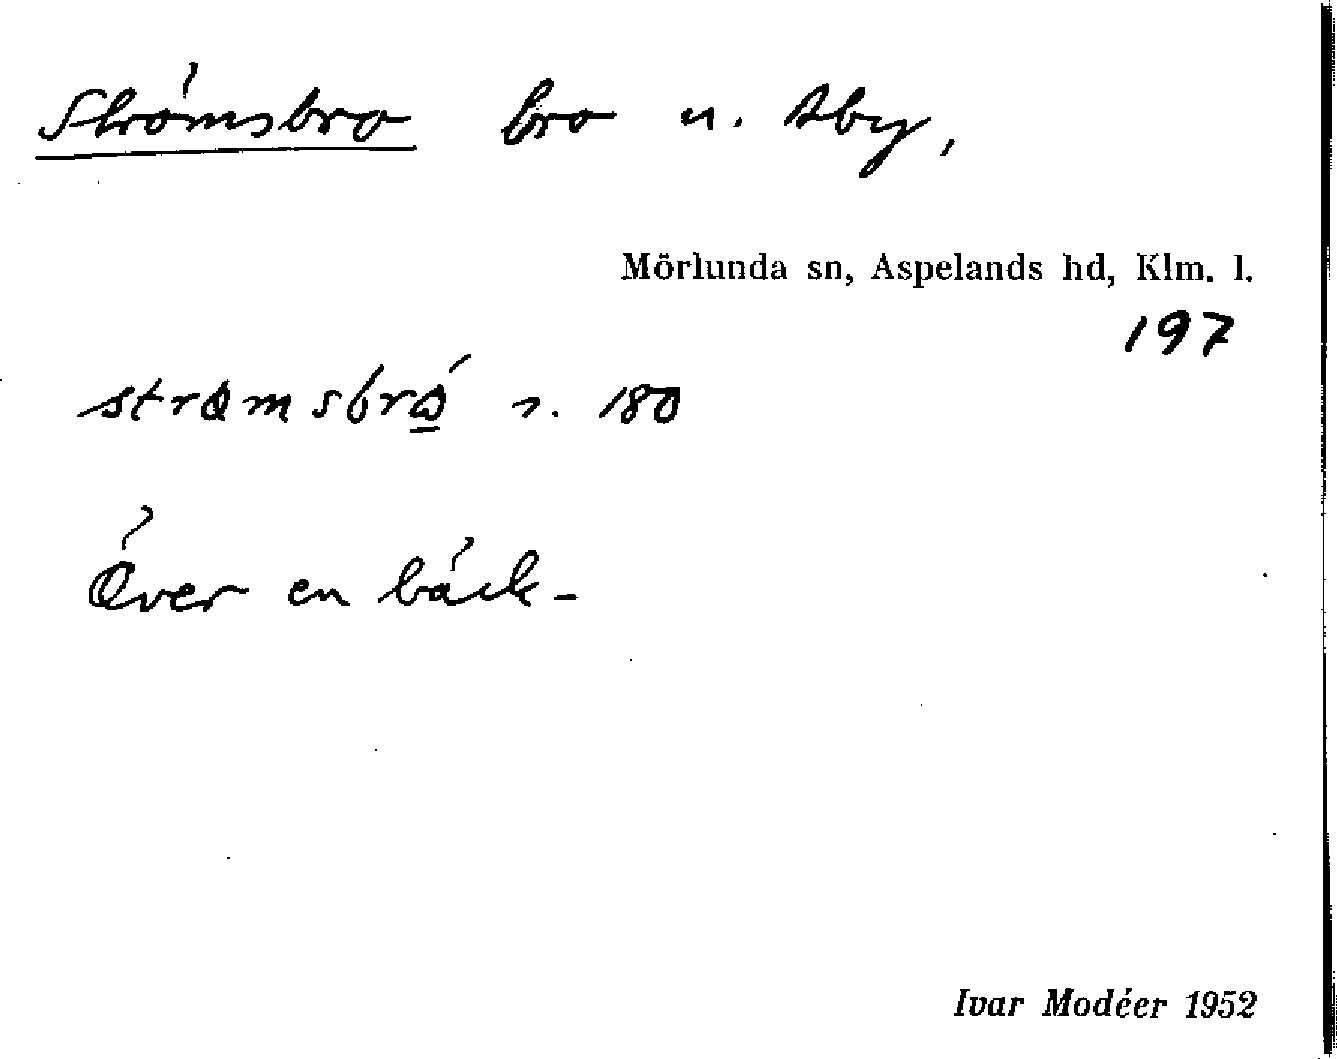 Strömsbro bro n. Åby,
Mörlunda sn, Aspelands hd, Klm. l.
197
180
Över en bäck.
Ivar Modéer 1952